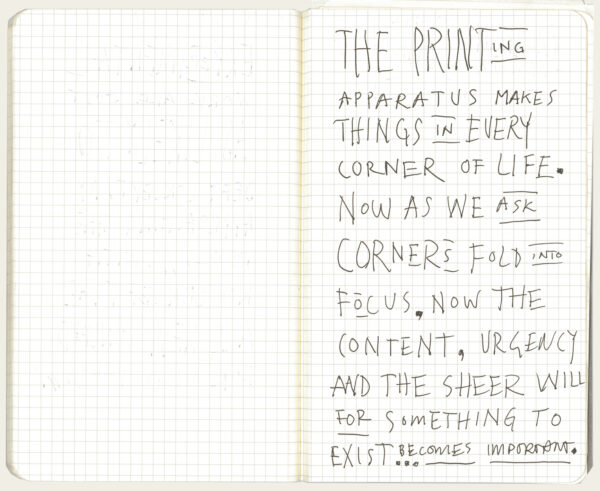 THE PRINTING
APPARATUS MAKES
THINGS IN EVERY
CORNER OF LIFE.
NOW AS WE ASK
CORNERS FOLD INTO
FOCUS, NOW THE
CONTENT, URGENCY
AND THE SHEER WILL
FOR SOMETHING TO
EXIST... BECOMES IMPORTANT.